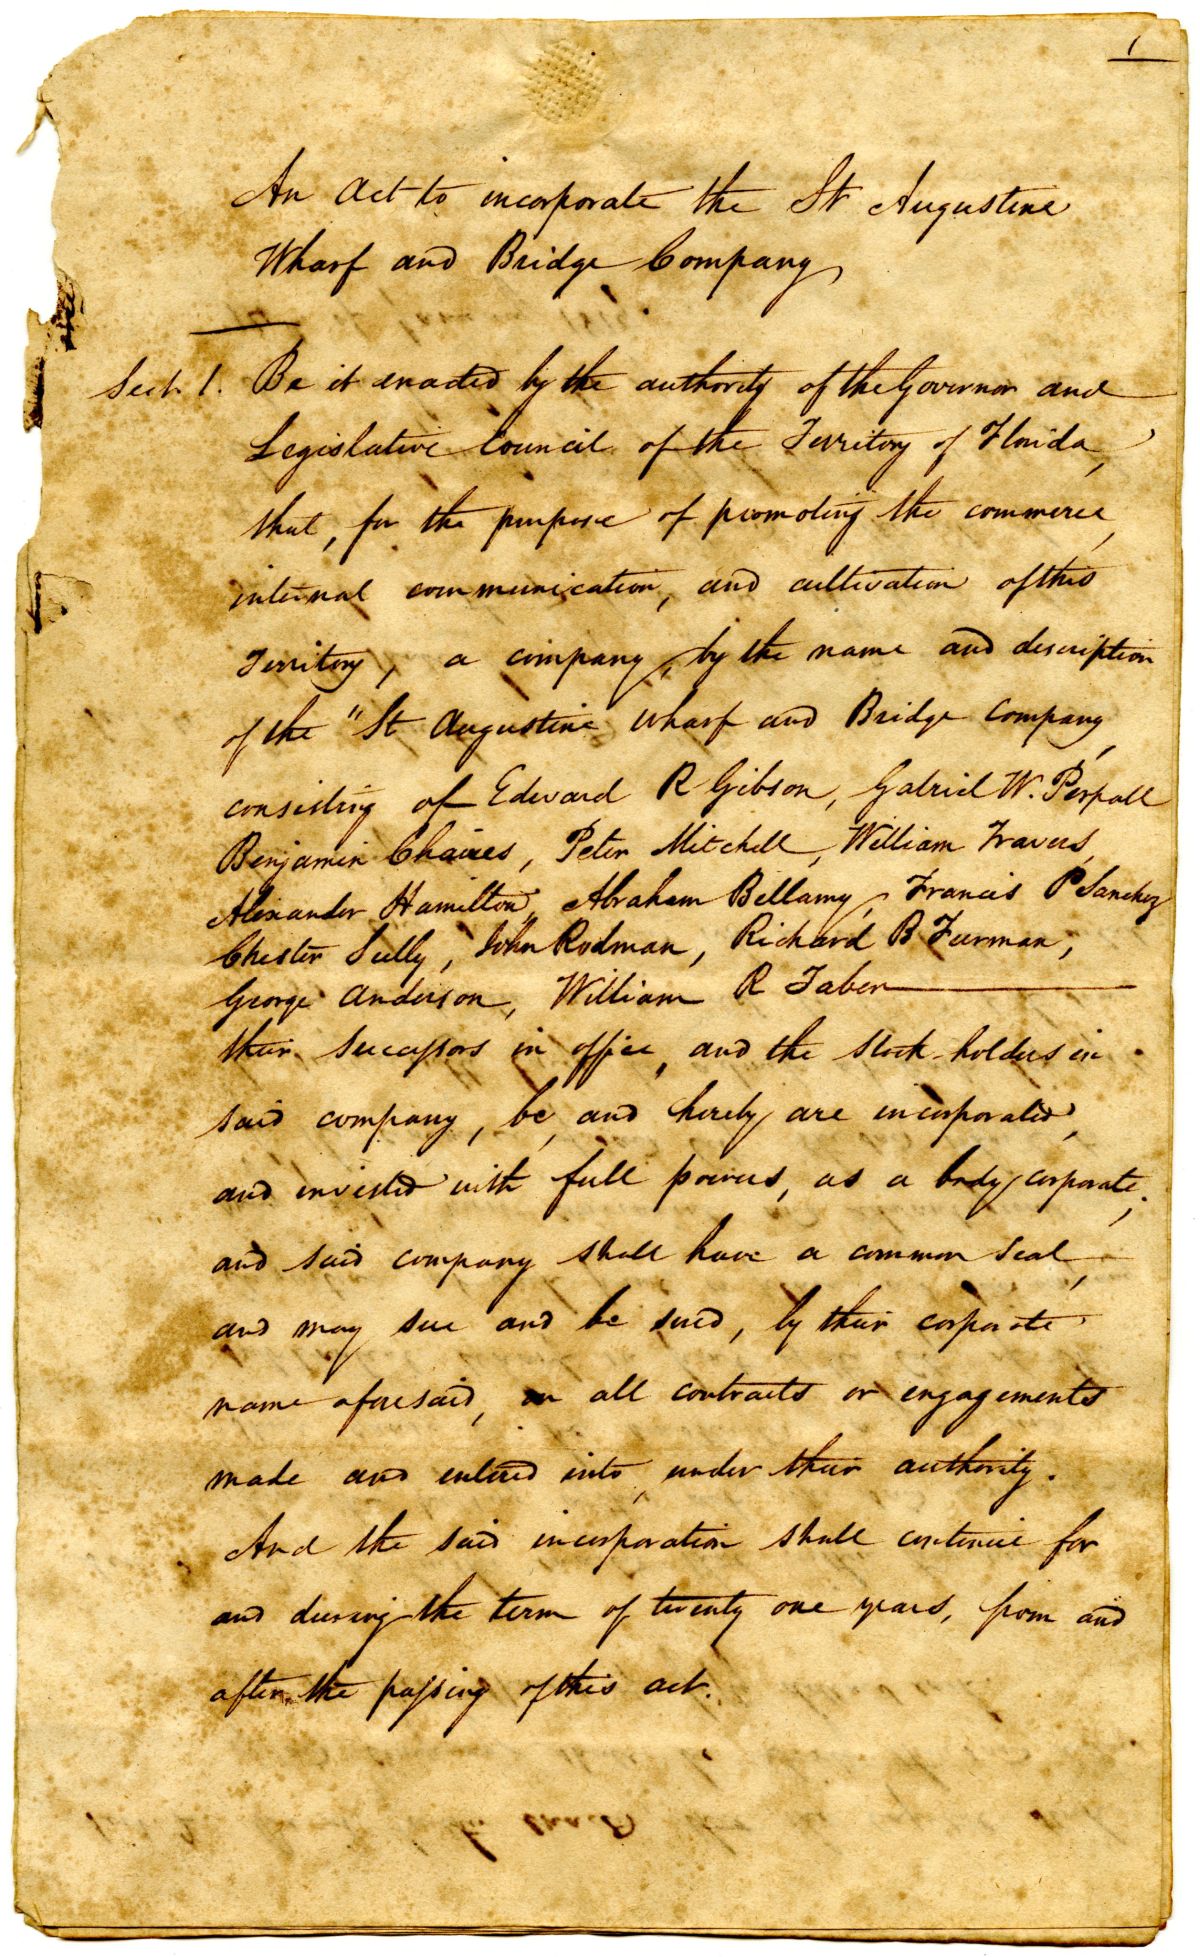 1
An Act to incorporate the St Augustine
Wharf and Bridge Company
Sect. 1. Be it enacted by the authority of the Governor and
Legislative Council of the Territory of Florida,
that, for the purpose of promoting the commerce,
internal communication, and cultivation of this
Territory, a company, by the name and description
of the "St Augustine Wharf and Bridge Company,
consisting of Edward R Gibson, Gabriel W. Perpall
Benjamin Chaires, Peter Mitchell, William Travers,
Alexander Hamilton, Abraham Bellamy, Francis P Sanchez
Chester Sully, John Rodman, Richard B Furman,
George Anderson, William R Taber
their successors in office, and the stock-holders in
said company, be, and hereby are incorporated,
and invested with full powers, as a body corporate;
and said company shall have a common seal,
and may sue and be sued, by their corporate
name aforesaid, on all contracts or engagements
made and entered into, under their authority.
And the said incorporation shall continue for
and during the term of twenty one years, from and
after the passing of this act.